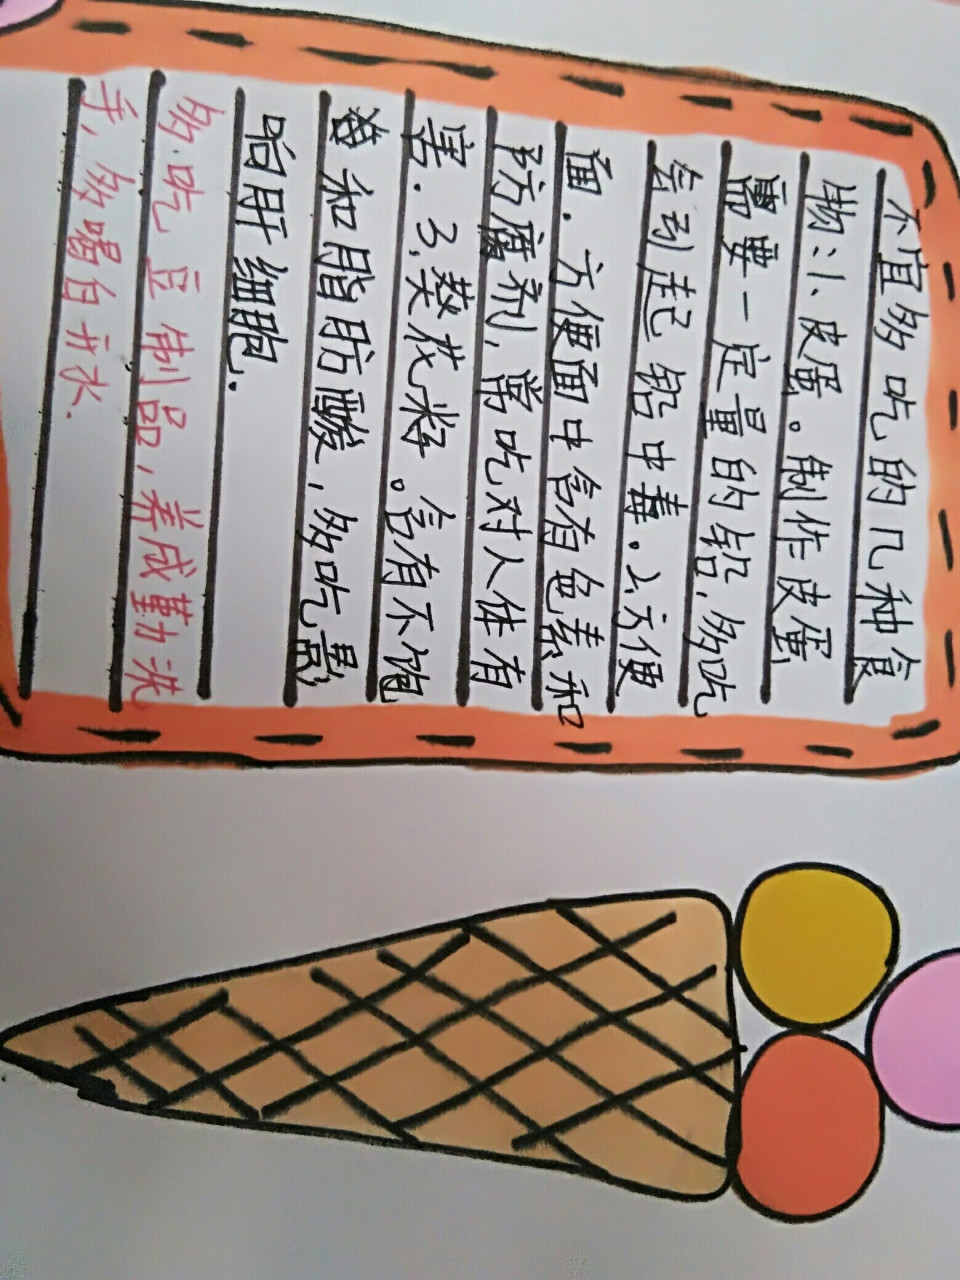 不宜多吃的几种食
物:1、皮蛋。制作皮蛋
需要一定量的铅,多吃
会引起铅中毒.2、方便
面.方便面中含有色素和
防腐剂,常吃对人体有
害.3、葵花籽。含有不饱
和脂肪酸,多吃影
响肝细胞.
多吃豆制品,养成勤洗
手,多喝白开水.